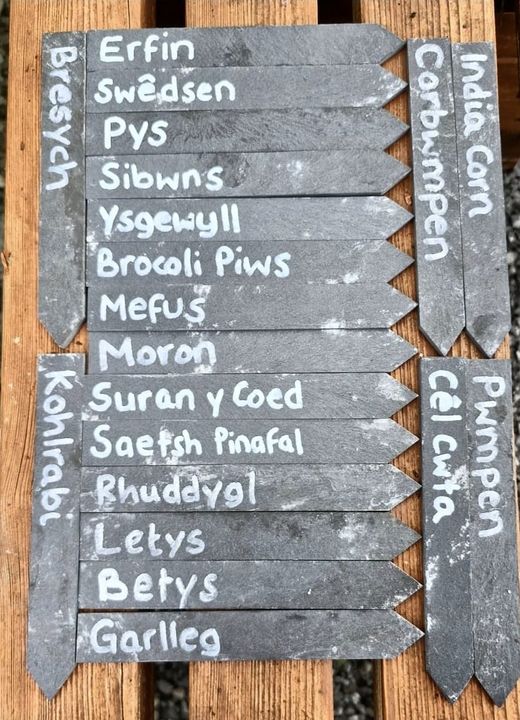 Bresych
Erfin
Swêdsen
Pys
Sibwns
Ysgewyll
Brocoli Piws
Mefus
Moron
Suran y Coed
Saetsh Pinafal
Rhuddygl
Letys
Betys
Garlleg
Kohlrabi
Corbwmpen
India Corn
Cêl Cwta
Pwmpen